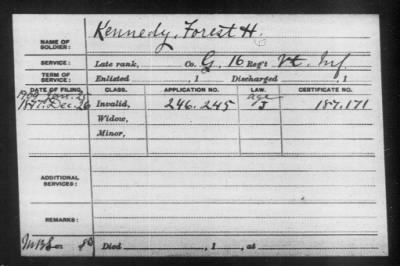 NAME OF SOLDIER: Kennedy, Forest H.
SERVICE: Late rank, Co. G, 16 Reg't Vt. Inf.
TERM OF SERVICE: Enlisted , 1 Discharged , 1
DATE OF FILING. CLASS. APPLICATION NO. LAW. CERTIFICATE NO.
1909 Jan. age
187 Dec. 26 Invalid, 246.245 13 187.171
Widow,
Minor,
ADDITIONAL SERVICES:
REMARKS:
Died , 1 , at